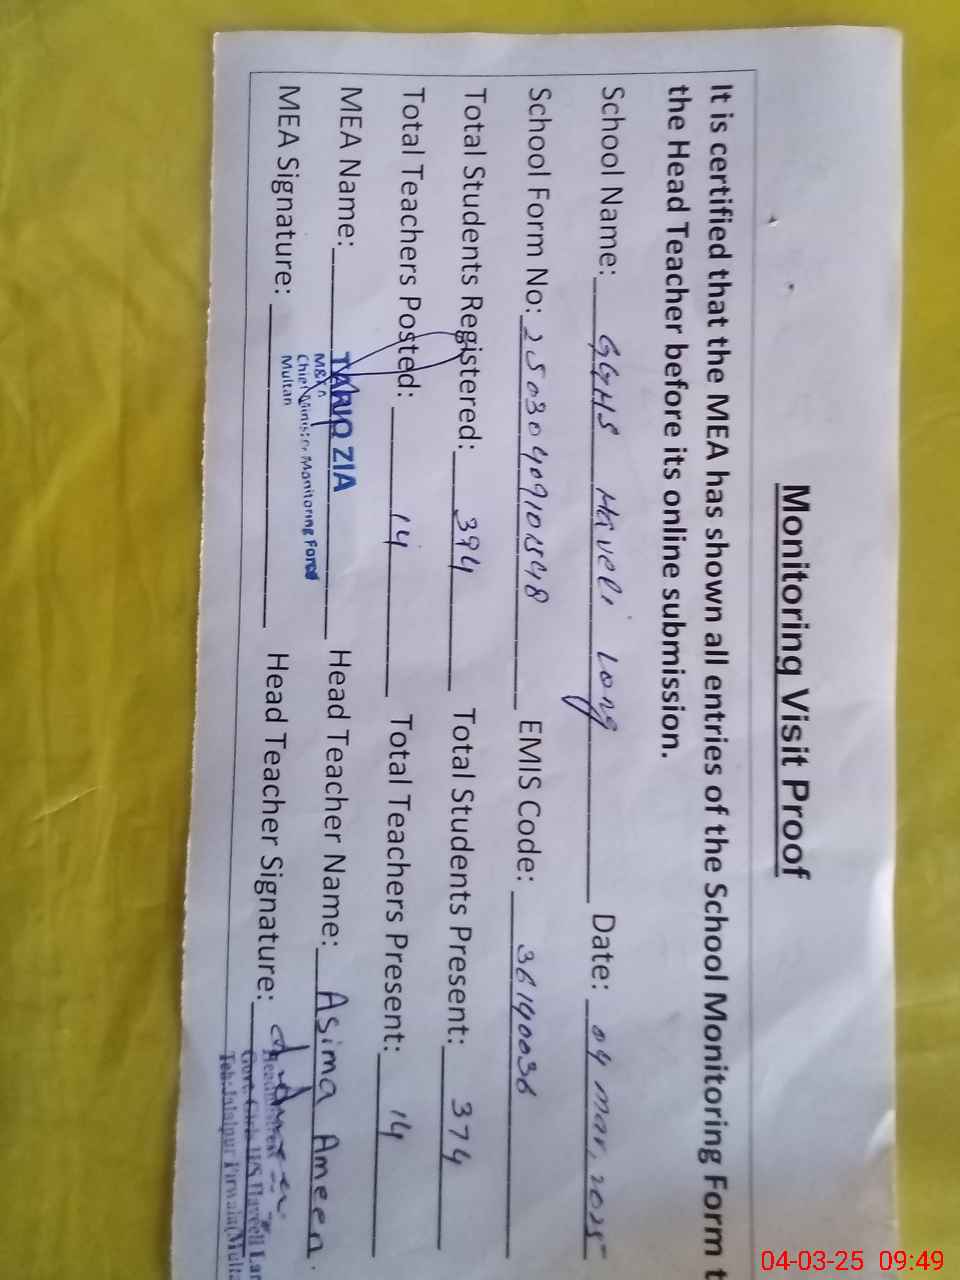 Monitoring Visit Proof
It is certified that the MEA has shown all entries of the School Monitoring Form t
the Head Teacher before its online submission.
School Name: GGHS Haveli Long Date: 04 Mar, 2025
School Form No: 25030409101548 EMIS Code: 36140036
Total Students Registered: 394 Total Students Present: 374
Total Teachers Posted: 14 Total Teachers Present: 14
MEA Name: TARIQ ZIA Head Teacher Name: Asima Ameen
M&EA
Chief Minister Monitoring Force
Multan
MEA Signature: Head Teacher Signature:
Headmistress
Govt. Girls H/S Haveeli Lan
Teh: Jalalpur Pirwala(Multa
04-03-25 09:49